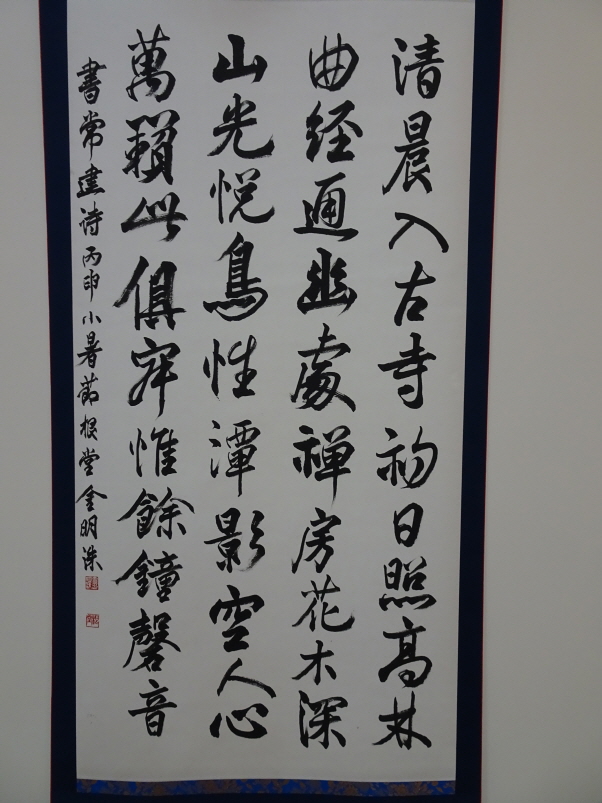 清晨入古寺初日照高林
曲经通幽處禅房花木深
山光悦鳥性潭影空人心
萬籟此俱寂惟餘鐘磬音
書常建诗丙申小暑節根堂金明洙